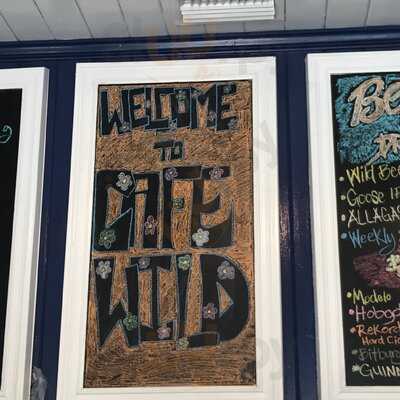 WELCOME
TO
CAFE
WILD
Be
Wild Bee
Goose IP
ALLAGAS
Weekly
Modelo
Hobog
Rekord
Hard Cid
Bitburg
GUINN